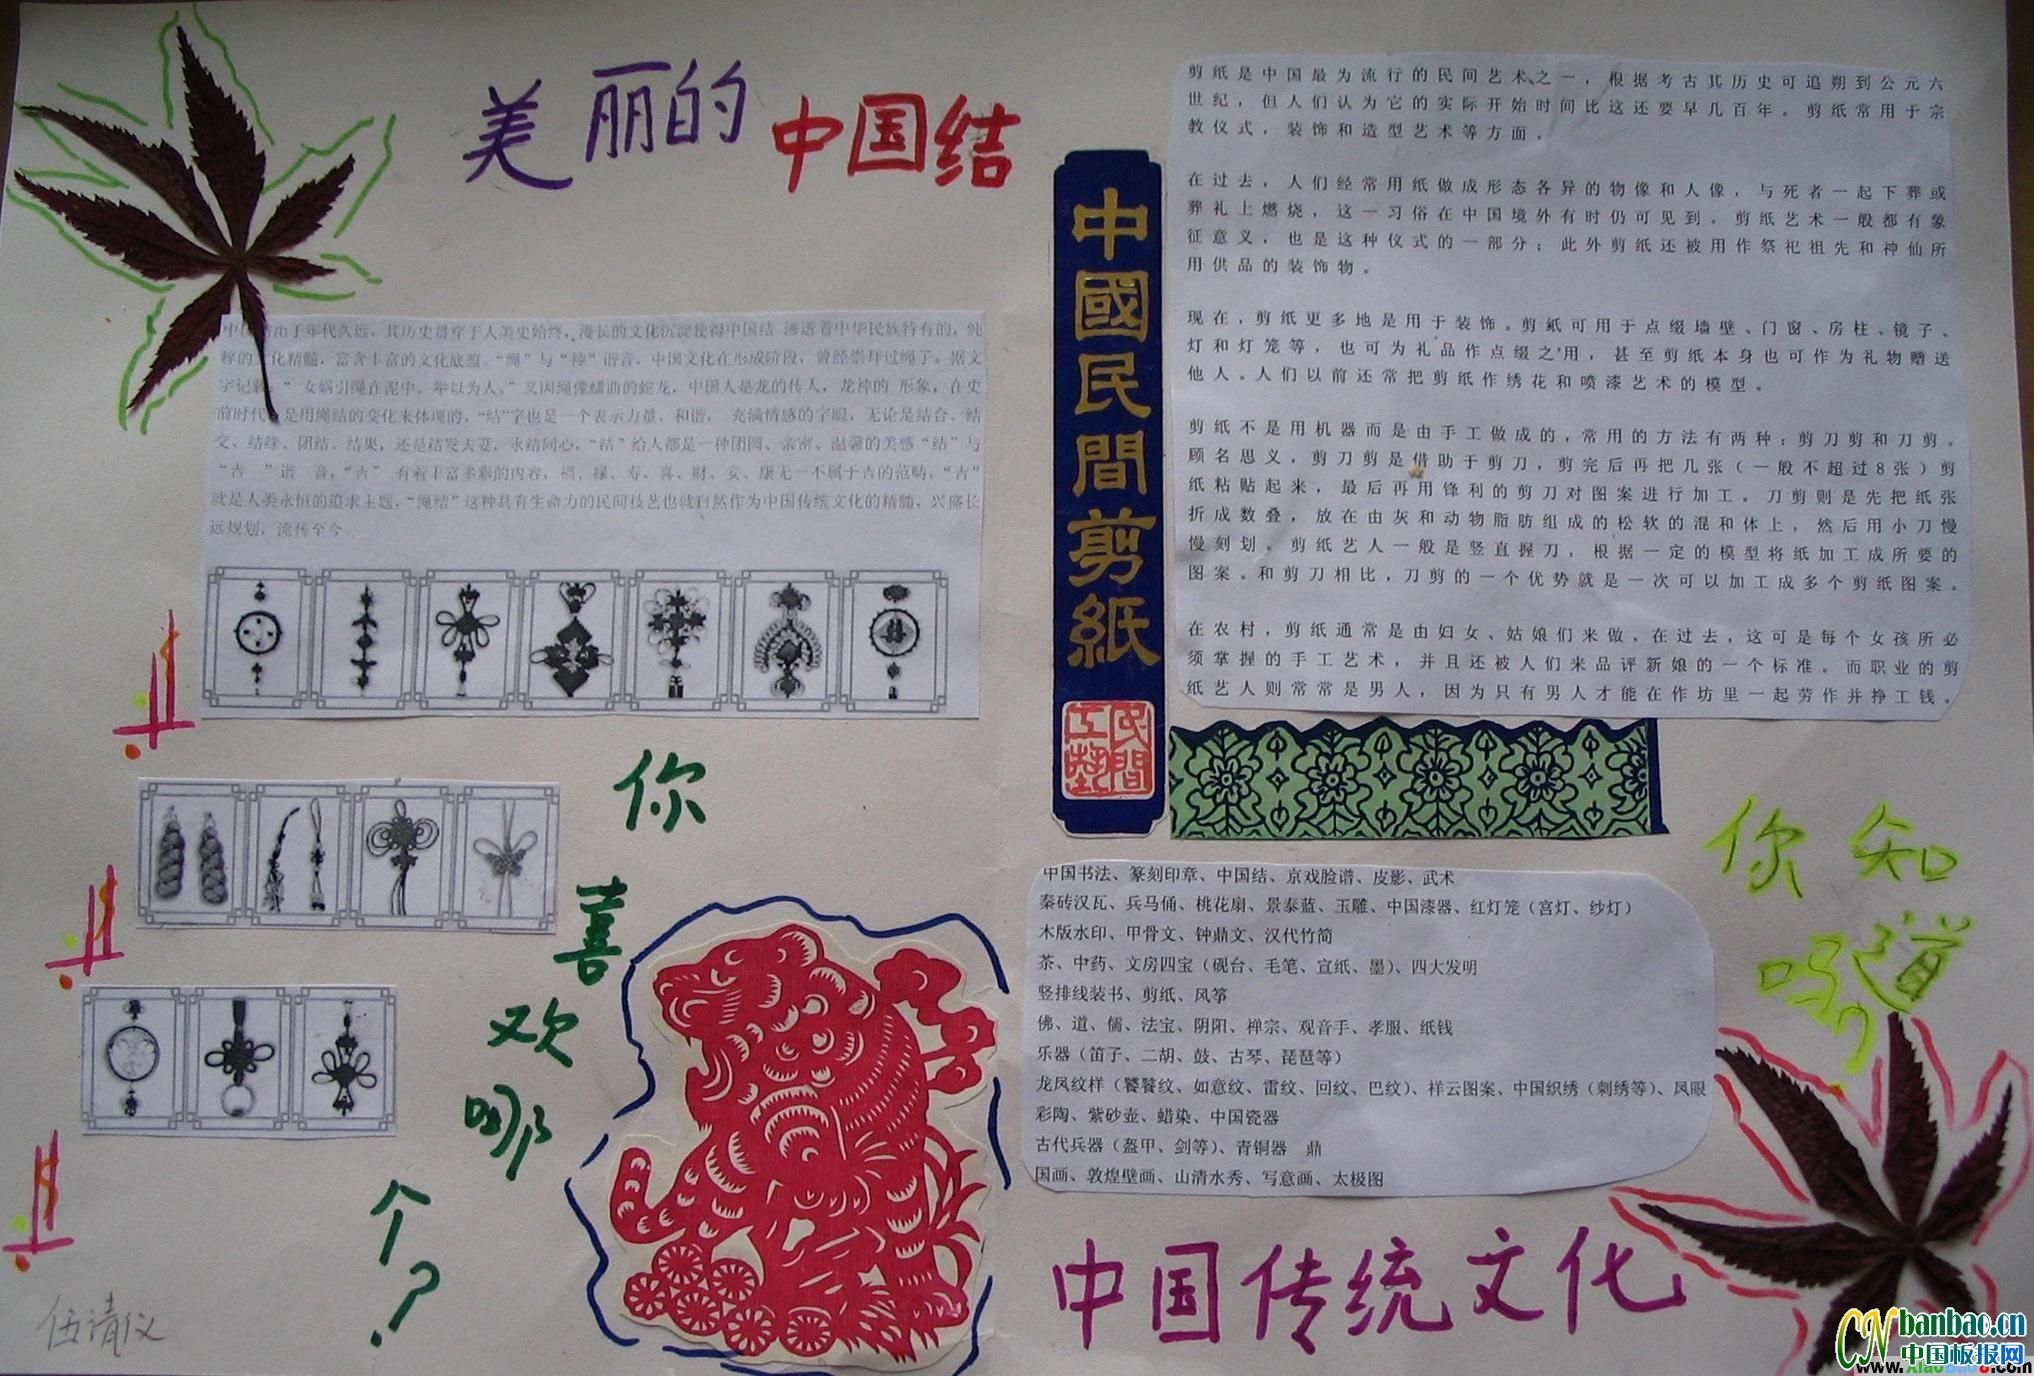 美丽的中国结
中国结由于年代久远，其历史贯穿于人类史始终，漫长的文化沉淀使得中国结 渗透着中华民族特有的，纯
粹的文化精髓，富含丰富的文化底蕴。“绳”与“神”谐音，中国文化在形成阶段，曾经崇拜过绳子。据文
字记载：“ 女娲引绳在泥中，举以为人。”又因绳像蟠曲的蛇龙，中国人是龙的传人，龙神的 形象，在史
前时代，是用绳结的变化来体现的。“结”字也是一个表示力量、和谐， 充满情感的字眼，无论是结合、结
交、结缘、团结、结果，还是结发夫妻，永结同心，“结”给人都是一种团圆、亲密、温馨的美感“结”与
“吉 ”谐 音，“吉” 有着丰富多彩的内容，福、禄、寿、喜、财、安、康无一不属于吉的范畴。“吉”
就是人类永恒的追求主题，“绳结”这种具有生命力的民间技艺也就自然作为中国传统文化的精髓，兴盛长
远规划，流传至今。
你喜欢哪个？
伍请仪
中國民間剪紙
民間工藝
剪纸是中国最为流行的民间艺术之一，根据考古其历史可追朔到公元六
世纪，但人们认为它的实际开始时间比这还要早几百年。剪纸常用于宗
教仪式，装饰和造型艺术等方面。
在过去，人们经常用纸做成形态各异的物像和人像，与死者一起下葬或
葬礼上燃烧，这一习俗在中国境外有时仍可见到。剪纸艺术一般都有象
征意义，也是这种仪式的一部分；此外剪纸还被用作祭祀祖先和神仙所
用供品的装饰物。
现在，剪纸更多地是用于装饰。剪纸可用于点缀墙壁、门窗、房柱、镜子、
灯和灯笼等，也可为礼品作点缀之用，甚至剪纸本身也可作为礼物赠送
他人。人们以前还常把剪纸作绣花和喷漆艺术的模型。
剪纸不是用机器而是由手工做成的，常用的方法有两种：剪刀剪和刀剪。
顾名思义，剪刀剪是借助于剪刀，剪完后再把几张（一般不超过8张）剪
纸粘贴起来，最后再用锋利的剪刀对图案进行加工。刀剪则是先把纸张
折成数叠，放在由灰和动物脂肪组成的松软的混和体上，然后用小刀慢
慢刻划。剪纸艺人一般是竖直握刀，根据一定的模型将纸加工成所要的
图案。和剪刀相比，刀剪的一个优势就是一次可以加工成多个剪纸图案。
在农村，剪纸通常是由妇女、姑娘们来做。在过去，这可是每个女孩所必
须掌握的手工艺术，并且还被人们来品评新娘的一个标准。而职业的剪
纸艺人则常常是男人，因为只有男人才能在作坊里一起劳作并挣工钱。
你知道吗
中国书法、篆刻印章、中国结、京戏脸谱、皮影、武术
秦砖汉瓦、兵马俑、桃花扇、景泰蓝、玉雕、中国漆器、红灯笼（宫灯、纱灯）
木版水印、甲骨文、钟鼎文、汉代竹简
茶、中药、文房四宝（砚台、毛笔、宣纸、墨）、四大发明
竖排线装书、剪纸、风筝
佛、道、儒、法宝、阴阳、禅宗、观音手、孝服、纸钱
乐器（笛子、二胡、鼓、古琴、琵琶等）
龙凤纹样（饕餮纹、如意纹、雷纹、回纹、巴纹）、祥云图案、中国织绣（刺绣等）、凤眼
彩陶、紫砂壶、蜡染、中国瓷器
古代兵器（盔甲、剑等）、青铜器 鼎
国画、敦煌壁画、山清水秀、写意画、太极图
中国传统文化
CN banbao.cn
中国板报网